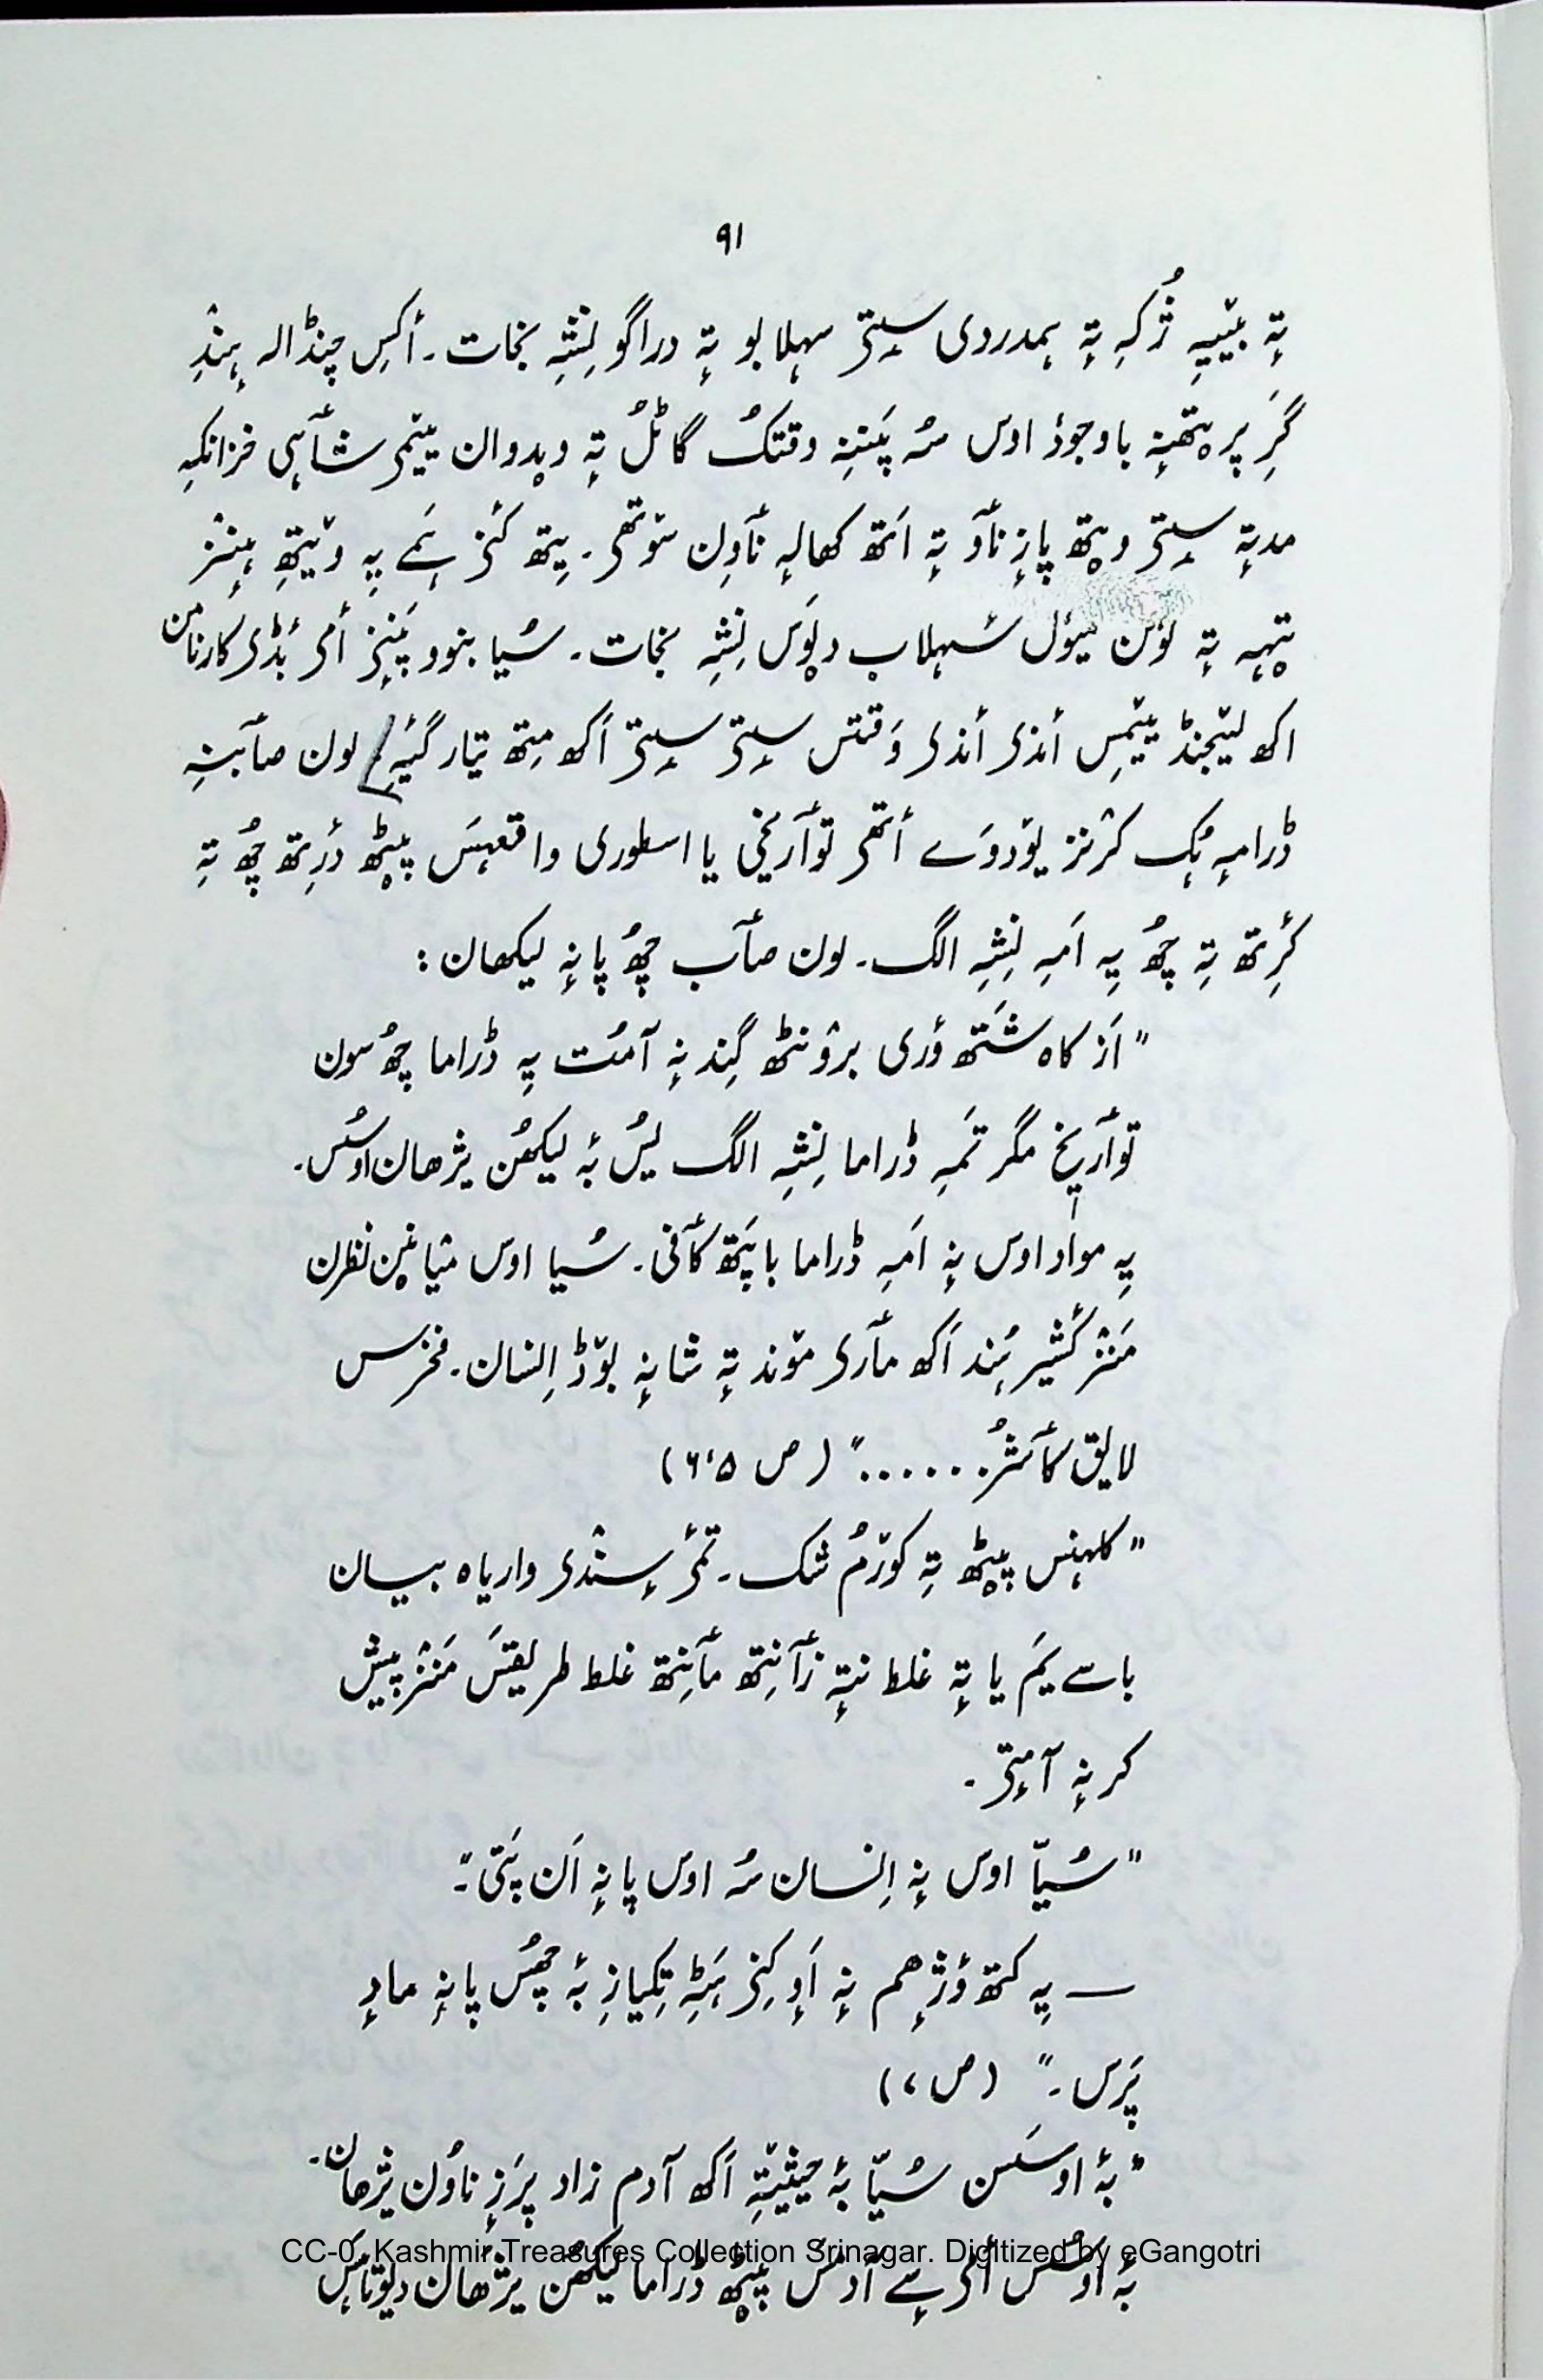 ۹۱
تہٕ بیٚیہِ ژُکہِ تہٕ ہمدردی سیٟتۍ سہلابو تہٕ دراگو نِشہِ نجات۔ أکِس چنڈالہ ہِنٛدِ
گَرِ پرٛتھنہٕ باوجوٗد اوس سُہ پَننِہ وقتُک گاٹُل تہٕ ودوان ییٚمۍ شأہی خزانکہِ
مدتہٕ سیٟتۍ ویتھ پازِ نأو تہٕ اَتھ کھالہٕ نأوِن سۆتھۍ۔ یِتھ کٔنۍ سَمے یہِ ویٚتھِ ہِنٛز
تہہ تہٕ لوٗن میوٗل سٔہلاب دِوَس نِشہِ نجات۔ سُیا بنوو پَننِز أمۍ بٔڈۍ کارنامن
اکھ لیٚجنڈ ییٚمِس أندۍ أندۍ وَقتس سیٟتۍ سیٟتۍ اَکھ مِتھ تیار گیٔہِ/ لون صأبنہِ
ڈرامہٕ ہُک کرٛنز یۆدوَے أتھۍ توأریٖخی یا اسطوری واقعہس پیٚٹھ دٔرِتھ چھُ تہِ
کٔرِتھ تہِ چھُ یہِ اَمہِ نِشہِ الگ۔ لون صأب چھُ پانہٕ لیکھان:
"اَز کاہ شَتَھ ؤری برٛونٹھ گِندنہٕ آمُت یہِ ڈراما چھُ سون
توأریخ مگر تَمہِ ڈراما نِشہِ الگ یُس بہٕ لیکھُن یژھان اوسُس۔
یہِ مواد اوس نہٕ اَمہِ ڈراما باپَتھ کأفی۔ سُیا اوس میٚانیٚن نظرن
مَنٛز کٔشیٖر ہُند اَکھ مأری مۆند تہٕ شانہٕ بۆڈ اِنسان۔ فخرس
لایق کأشُر......" (ص ۵،۶)
"کلہنس پیٚٹھ تہِ کۆرُم شک۔ تٔمۍ سٕندۍ واریاہ بیان
باسے یَم یا تہٕ غلط نتہٕ زأنِتھ مأنِتھ غلط طریقَس مَنٛز پیش
کرنہٕ آمٕتۍ۔
"سُیّا اوس نہٕ اِنسان سُہ اوس پانہٕ اَن پَتی"۔
— یہِ کتھ وٕژھم نہٕ أوِکِنۍ ہَٹہِ تِکیازِ بہٕ چھُس پانہٕ مادِ
پَرَس۔" (ص ۷)
"بہٕ اوسُسن سُیّا بہٕ حیثیتہِ اَکھ آدم زاد پرَزٕ ناوُن یژھان۔
بہٕ اوسُس أکۍ سٕے آدمَس پیٚٹھ ڈراما لیکھُن یژھان دیوتاہَس
CC-0. Kashmir Treasures Collection Srinagar. Digitized by eGangotri